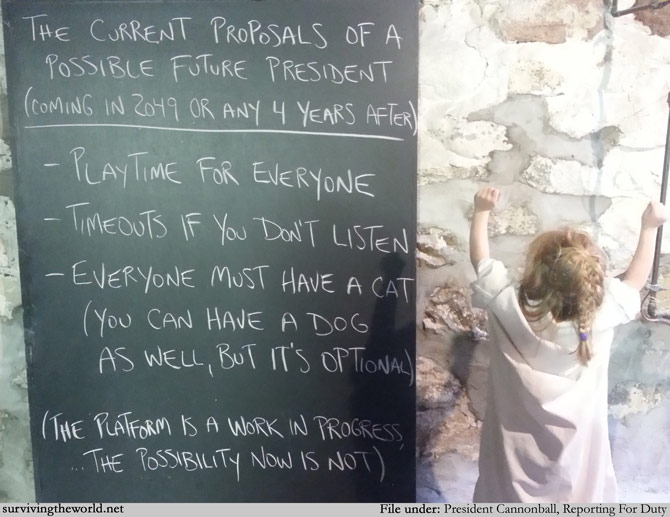 THE CURRENT PROPOSALS OF A
POSSIBLE FUTURE PRESIDENT
(COMING IN 2049 OR ANY 4 YEARS AFTER)
- PLAYTIME FOR EVERYONE
- TIMEOUTS IF YOU DON'T LISTEN
- EVERYONE MUST HAVE A CAT
(YOU CAN HAVE A DOG
AS WELL, BUT IT'S OPTIONAL)
(THE PLATFORM IS A WORK IN PROGRESS,
...THE POSSIBILITY NOW IS NOT)
survivingtheworld.net
File under: President Cannonball, Reporting For Duty